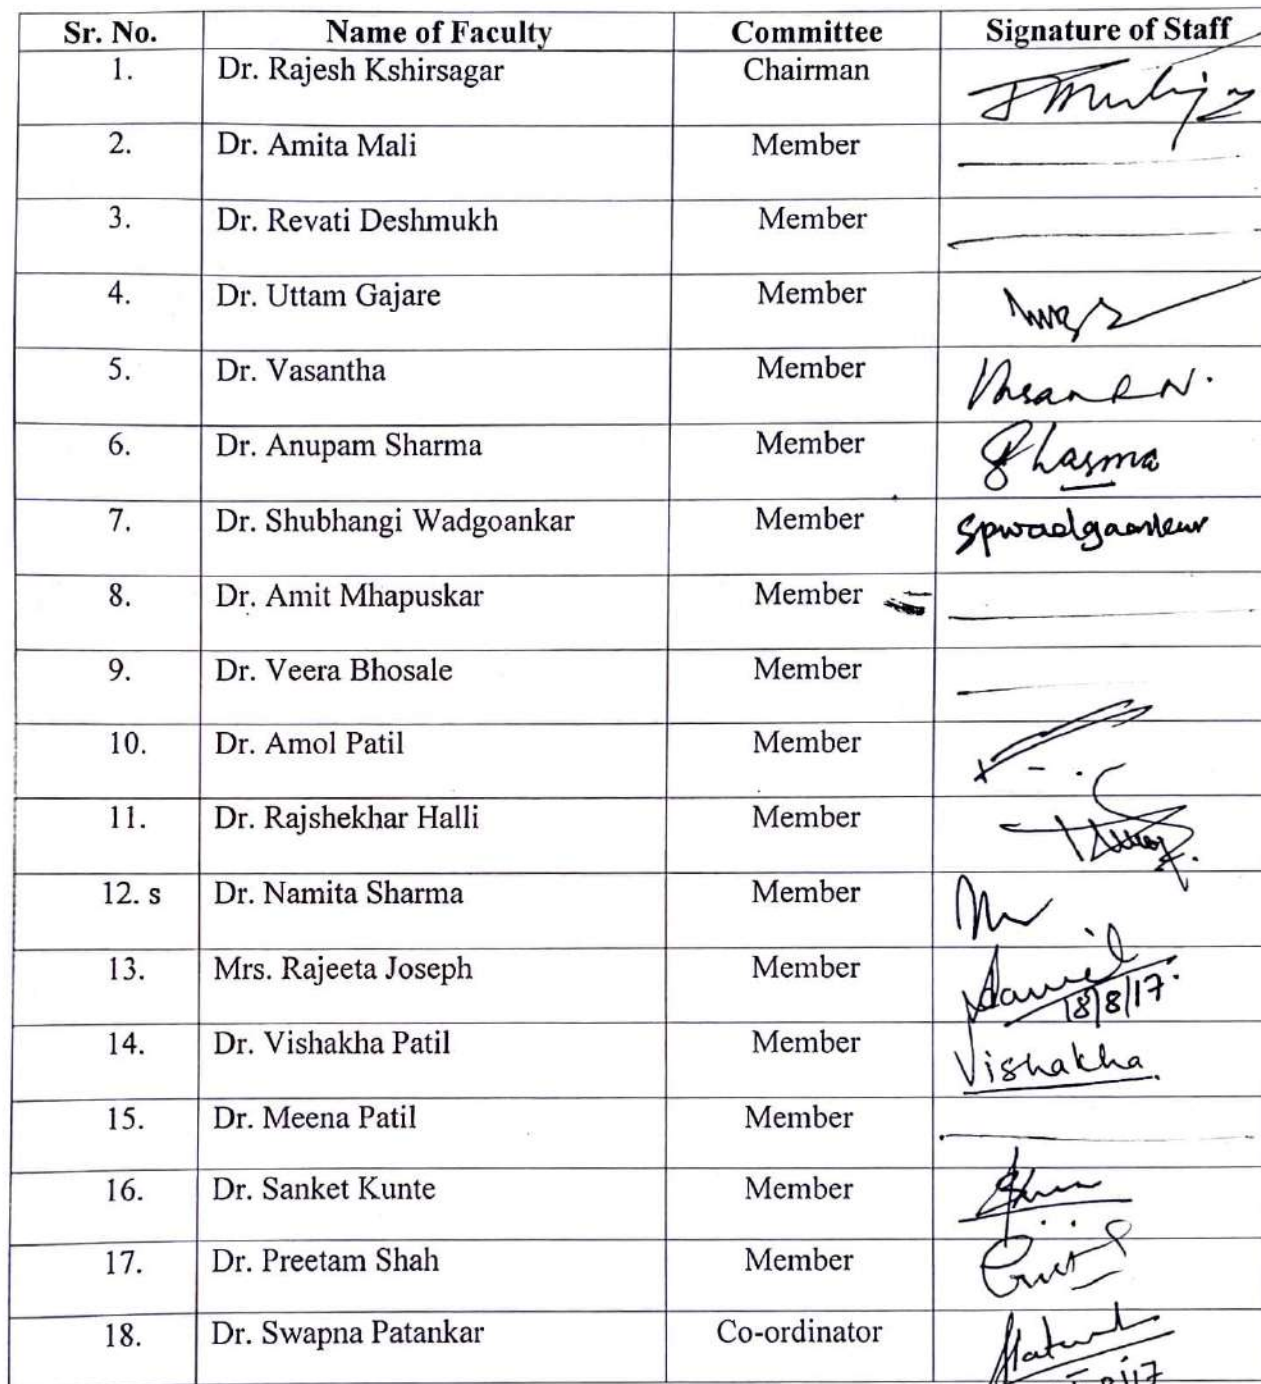 Sr. No. Name of Faculty Committee Signature of Staff
1. Dr. Rajesh Kshirsagar Chairman
2. Dr. Amita Mali Member
3. Dr. Revati Deshmukh Member
4. Dr. Uttam Gajare Member
5. Dr. Vasantha Member
6. Dr. Anupam Sharma Member Sharma
7. Dr. Shubhangi Wadgoankar Member Spwadgaonkar
8. Dr. Amit Mhapuskar Member
9. Dr. Veera Bhosale Member
10. Dr. Amol Patil Member
11. Dr. Rajshekhar Halli Member
12. s Dr. Namita Sharma Member
13. Mrs. Rajeeta Joseph Member
18/8/17.
14. Dr. Vishakha Patil Member Vishakha
15. Dr. Meena Patil Member
16. Dr. Sanket Kunte Member
17. Dr. Preetam Shah Member
18. Dr. Swapna Patankar Co-ordinator